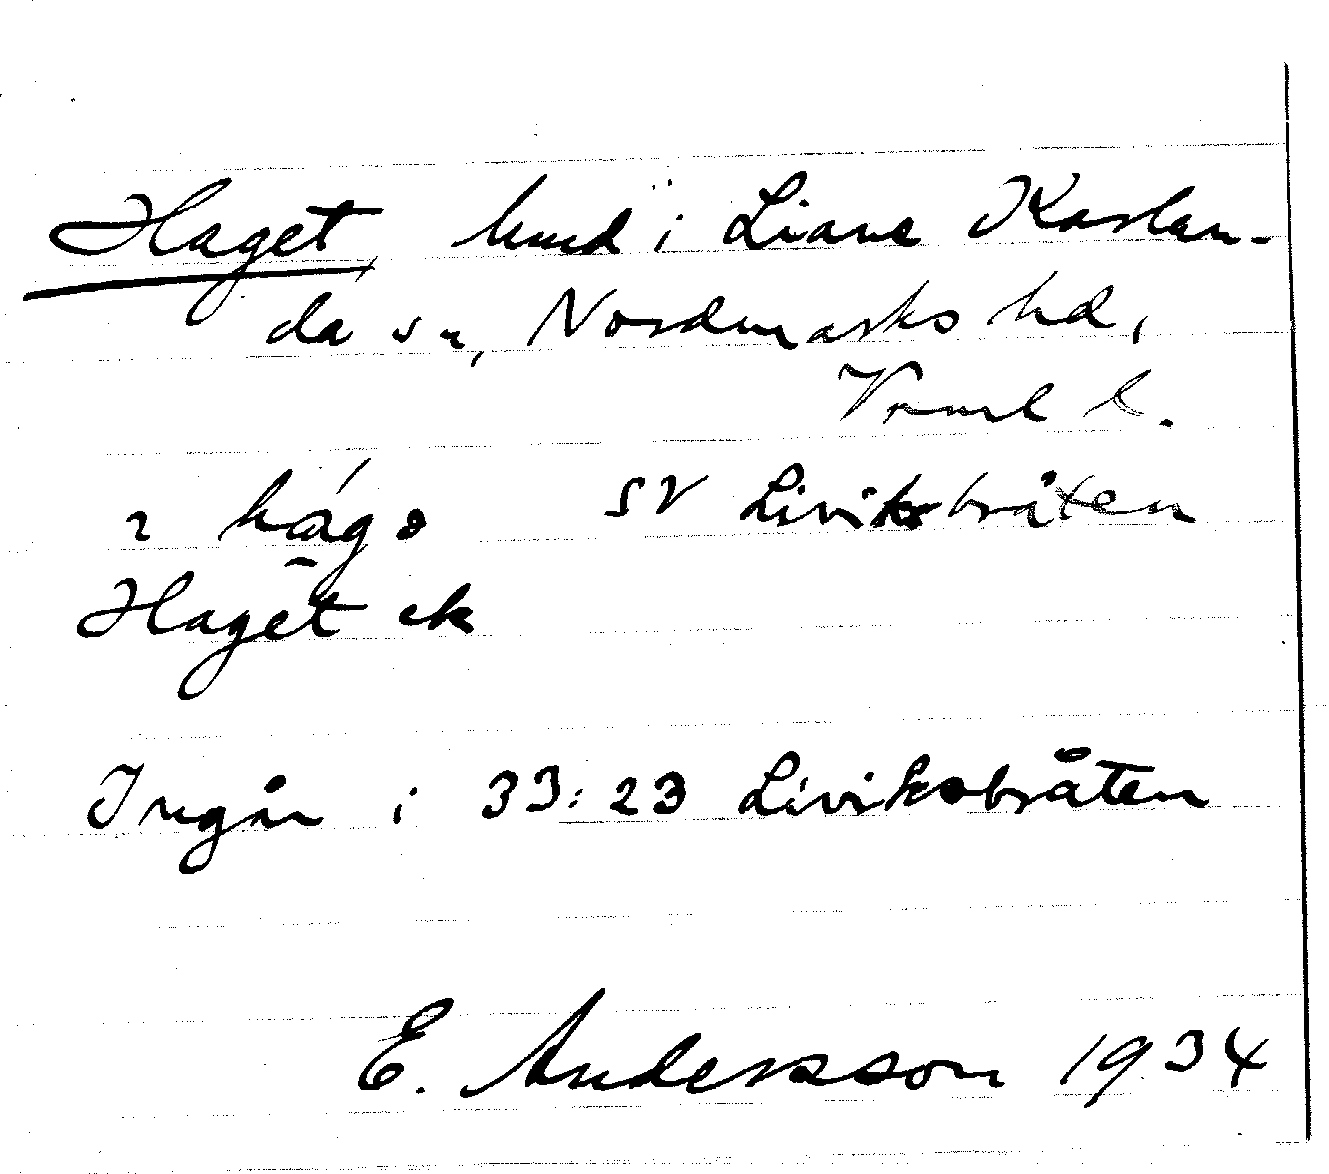 Haget, hmd i Liane Karlan-
da sn, Nordmarks hd,
Vrml l.
hágə SV Liviksbråten
Haget ek
Ingår i 33:23 Liviksbråten
E. Andersson 1934